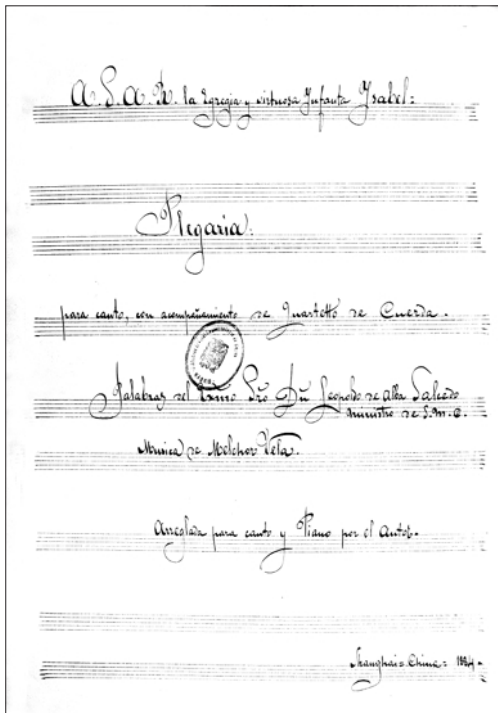 A. S. A. R. la Egregia y virtuosa Infanta Ysabel:
Plegaria:
para canto, con acompañamiento de Quartetto de Cuerda.
Palabras del Exmo Sr̃o Dñ Leopoldo de Alba Salcedo
ministro de S. M. C.
Musica de Melchor Vela.
Arreglada para canto y Piano por el Autor.
Shanghai = China = 1884 =